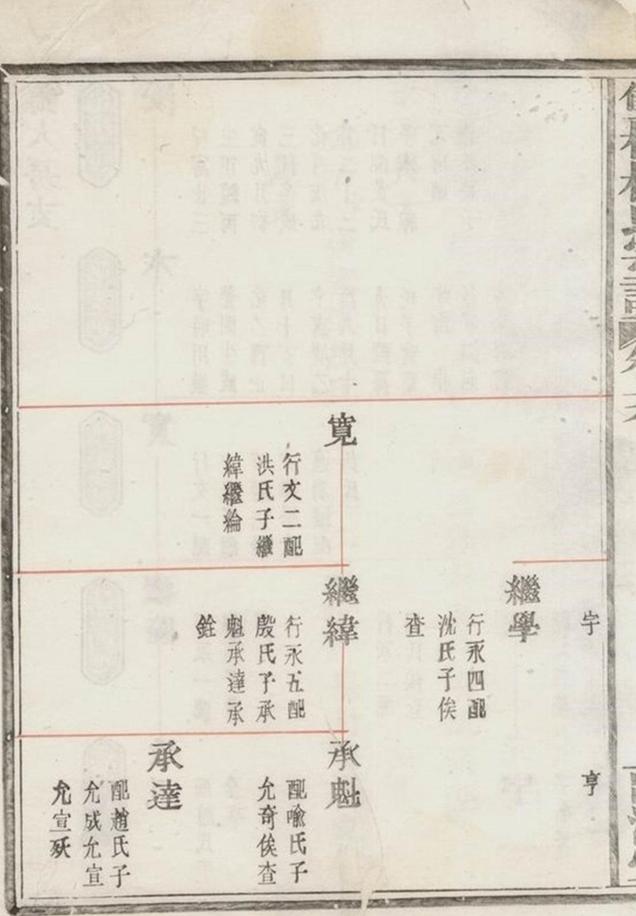 宇
亨
繼學
行永四配
沈氏子俟
查
寬
行文二配
洪氏子繼
緯繼綸
繼緯
行永五配
殷氏子承
魁承達承
銓
承魁
配喻氏子
允奇俟查
承達
配趙氏子
允成允宣
允宣殀